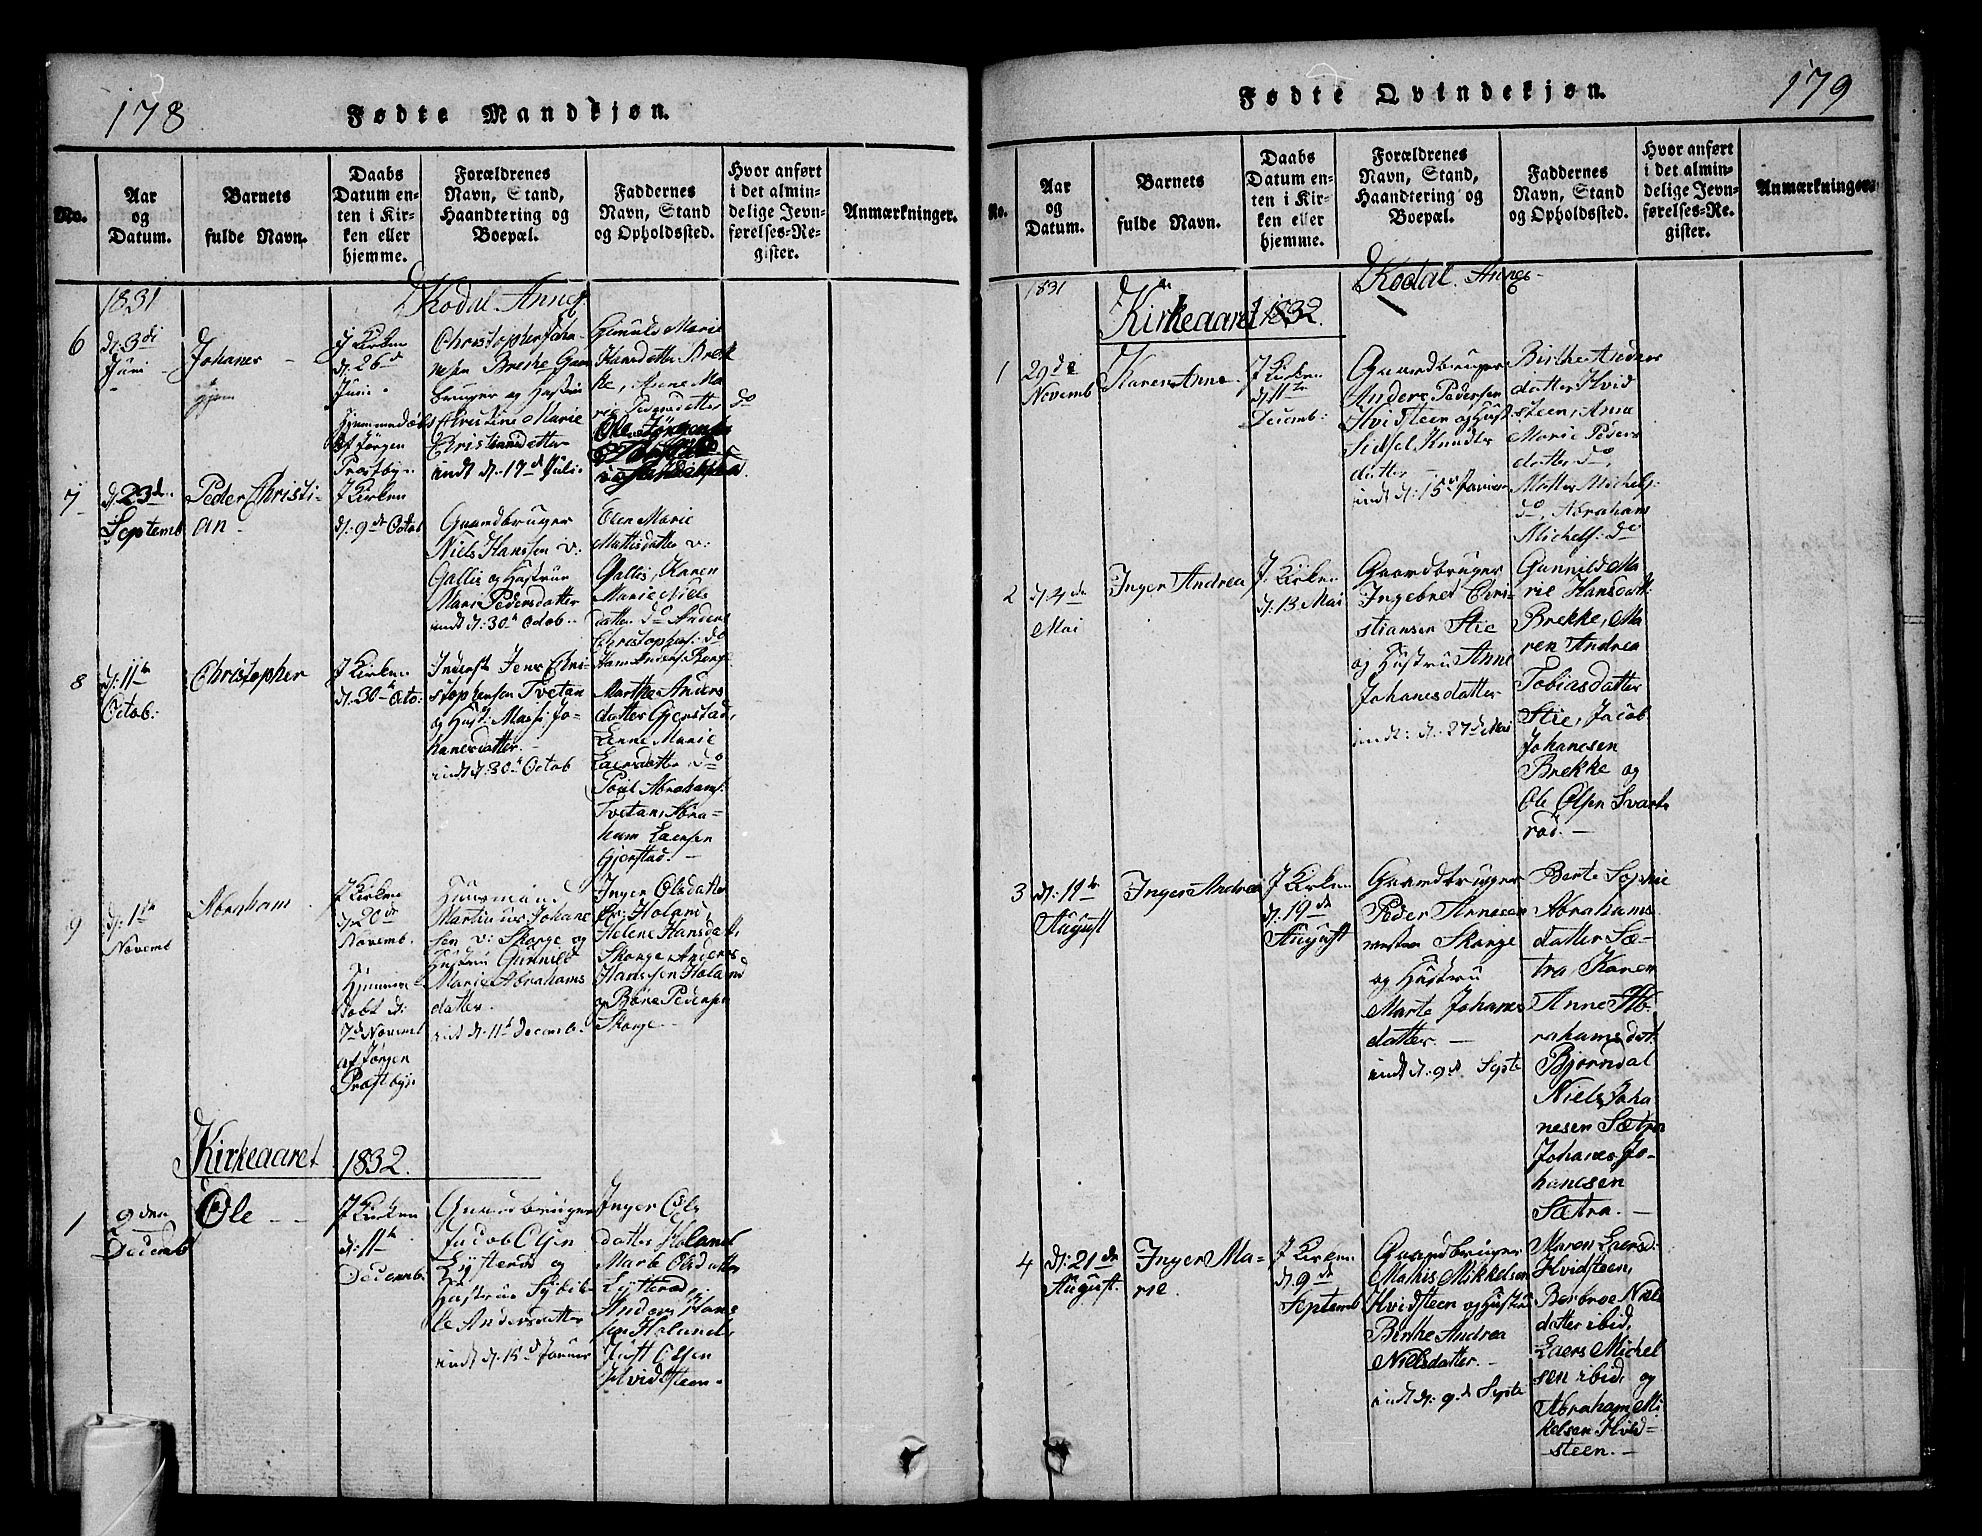 178
Fødte Mandkjøn.
No.
Aar
og
Datum.
Barnets
fulde Navn.
Daabs
Datum en-
ten i Kir-
ken eller
hjemme.
Forældrenes
Navn, Stand,
Haandtering og
Boepæl.
Faddernes
Navn, Stand
og Opholdssted.
Hvor anført
i det almin-
delige Jevn-
førelses-Re-
gister.
Anmærkninger.
1831
Kodal Annex
6
d: 3di
Juni
Johanes
J Kirken
d: 26de
Juni
Hjemmedøbt
af Jørgen
Præstbye
Christopher Joha-
nesen Brekke Gaard-
bruger og Hustru
Christine Marie
Christiansdatter
indt d: 17d Juli
Marie
Hansdatter Brek-
ke, Anne Ma-
rie Pedersdatter do
7
d. 23de
Septemb
Peder Christi-
an
J Kirken
d: 9de Octob
Gaardbruger
Niels Hanssen v:
Gallis og Hustrue
Mari Pedersdatter
indt d: 30d Octob
Elen Marie
Mattisdatter v:
Gallis, Karen
Marie Niels
datter do Anders
Christophers: do
8
d: 11te
Octob:
Christopher
J Kirken
d: 30d Octo.
Inderst Jens Chri-
stophersen Tvetan
og Hust: Maria Jo-
hanesdatter.
indt d: 30d Octob
Marthe Anders
datter Gjerstad,
Lenne Marie
Laersdatter do
Poul Abrahams:
Tvetan, Abra-
ham Laersen
Gjerstad.
9
d: 1ste
Novemb
Abraham
J Kirken
d: 20de
Novemb.
Hjemme
døbt d:
7d Novemb
af Jørgen
Præstbye
Huusmand
Martinius Johane
sen v: Skorge og
Hustru Gunnild
Marie Abrahams
datter.
indt d: 11d Decemb.
Inger Olsdatter
Holand,
Helene Hansdatt,
Skorge Anders
Hanssen Holand
og Børe Pedersen
Skorge
Kirkeaaret 1832.
1
9den
Decemb
Ole
J Kirken
d: 11te
Decembr
Gaardbruger
Jacob Olsen
Lysterød og
Hustrue Sybil-
le Andersdatter
indt d: 15d Januar
Inger Ols
datter Holand
Mart Olsdatter
Lysterød
Anders Han-
sen Holand,
Just Olsen
Hvidsteen
179
Fødte Qvindekjøn.
No.
Aar
og
Datum.
Barnets
fulde Navn.
Daabs
Datum en-
ten i Kir-
ken eller
hjemme.
Forældrenes
Navn, Stand,
Haandtering og
Boepæl.
Faddernes
Navn, Stand
og Opholdssted.
Hvor anført
i det almin-
delige Jevn-
førelses-Re-
gister.
Anmærkninger.
1831
Kodal. Annex
Kirkeaaret 1832.
1
29de
Novemb
Karen Anne
J Kirken
d: 11te
Decemb:
Gaardbruger
Anders Pedersen
Hvidsteen og Hust
Sidsel Knuds
datter
indt d: 15d Januar
Birthe Anders
datter Hvid
steen, Anne
Marie Peders
datter do,
Matter Michels:
do, Abraham
Michels: do
2
d: 4de
Mai
Inger Andrea
J. Kirken
d: 13 Mai
Gaardbruger
Ingebret Chri-
stiansen Stie
og Hustru Anne
Johanesdatter
indt: d: 27d Mai
Gunnild Ma-
rie Hansdatt:
Brekke, Ma
ren Andrea
Tobiasdatter
Stie, Jacob
Johanesen
Brekke og
Ole Olsen Svarte
rød.
3
d: 19te
August
Inger Andrea
J Kirken
d: 19de
August
Gaardbruger
Peder Arnesen
Skorge
og Hustru
Marte Johanes
datter.
indt d: 9d. Septe
Berte Sophie
Abrahams
datter Sæ-
tra Karen
Anne Ab-
rahamsdat:
Bjørndal
Niels Joha-
nesen Sætra
Johanes Jo-
hanesen
Sætra.
4
d: 21de
August.
Inger Ma-
rie.
J Kirken
d: 9de
Septemb
Gaardbruger
Mathis Mikkelsen
Hvidsteen og Hustru
Birthe Andrea
Nielsdatter.
indt d: 9d Septe
Maren Laersd:
Hvidsteen,
Berbroe Niels
datter ibid,
Laers Michel
sen ibid, og
Abraham Mi-
kelsen Hvid-
steen.